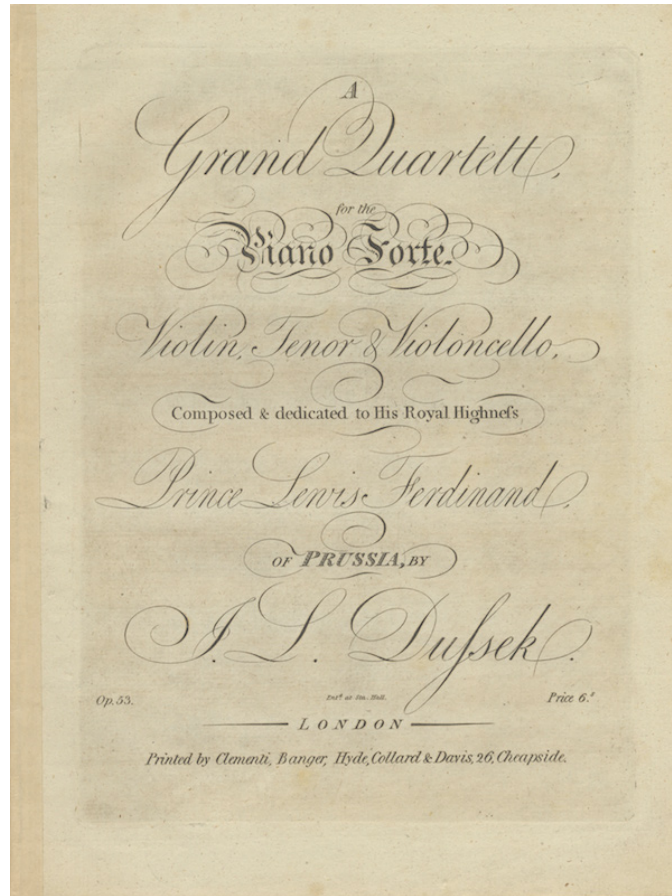 A
Grand Quartett,
for the
Piano Forte.
Violin, Tenor & Violoncello,
Composed & dedicated to His Royal Highneſs
Prince Lewis Ferdinand,
OF PRUSSIA, BY
J. L. Duſsek.
Op. 53. Ent.d at Sta. Hall. Price 6.s
LONDON
Printed by Clementi, Banger, Hyde, Collard & Davis, 26, Cheapside.